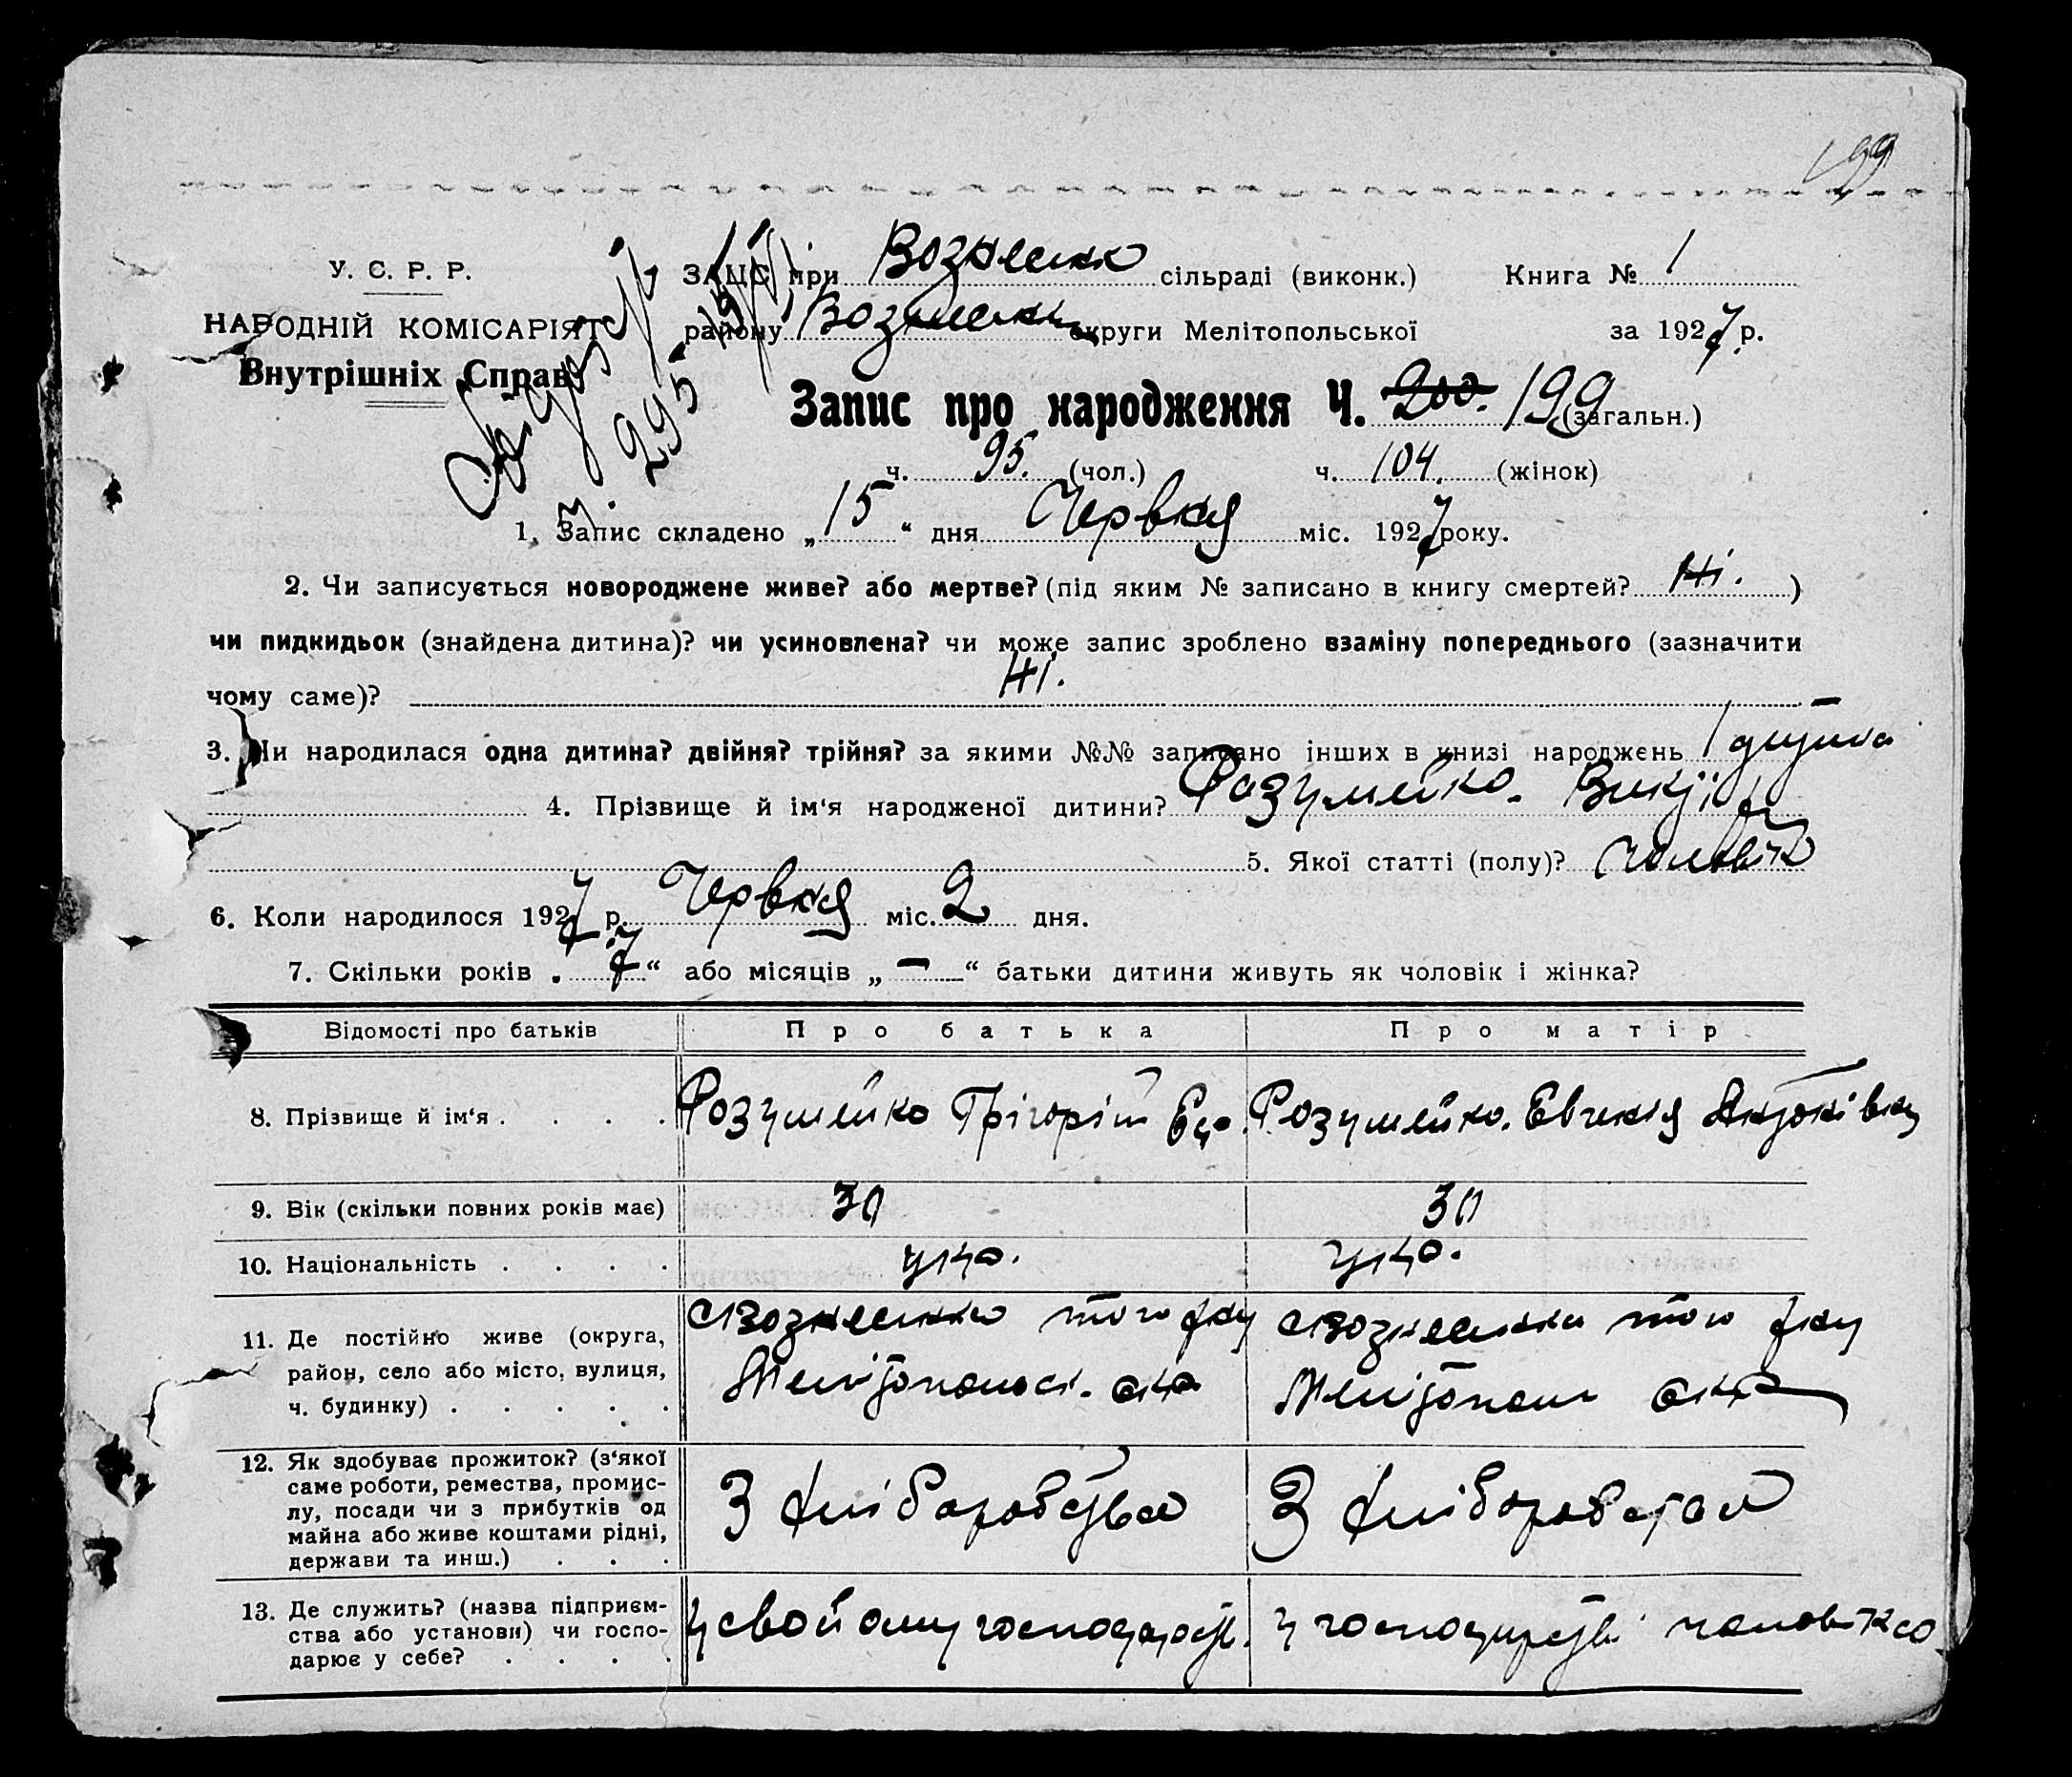 199
У. С. Р. Р.
НАРОДНІЙ КОМІСАРІЯТ
Внутрішніх Справ
ЗАЦС при Вознесенк сільраді (виконк.) Книга № 1
району Вознесенк округи Мелітопольської за 1927 р.
Запис про народження Ч. 200. 199 (загальн.)
ч. 95. (чол.) ч. 104. (жінок)
295
1. Запис складено „15“ дня Червня міс. 1927 року.
2. Чи записується новороджене живе? або мертве? (під яким № записано в книгу смертей? Ні. )
чи пидкидьок (знайдена дитина)? чи усиновлена? чи може запис зроблено взаміну попереднього (зазначити
чому саме)? Ні. –
3. Чи народилася одна дитина? двійня? трійня? за якими №№ записано інших в книзі народжень 1 дитина
4. Прізвище й ім‘я народженої дитини? Розумейко. Віктор
5. Якої статті (полу)? чоловік
6. Коли народилося 1927 р. Червня міс. 2 дня.
7. Скільки років „7“ або місяців „–“ батьки дитини живуть як чоловік і жінка?
Відомості про батьків Про батька Про матір
8. Прізвище й ім‘я . . . . Розумейко Грігорій Розумейко. Евгенія Антонівна
9. Вік (скільки повних років має) 30 30
10. Національність . . . . укр. укр.
11. Де постійно живе (округа,
район, село або місто, вулиця,
ч. будинку) . . . . .
с Вознесенка того р-ну с Вознесенка того р-ну
Мелітопольск. окр Мелітополь окр
12. Як здобуває прожиток? (з‘якої
саме роботи, ремества, промис-
лу, посади чи з прибутків од
майна або живе коштами рідні,
держави та инш.) . . .
З хліборобства З хліборобства
13. Де служить? (назва підприєм-
ства або установи) чи госпо-
дарює у себе? . . . .
у свойому господарств. у господарстві чоловіка